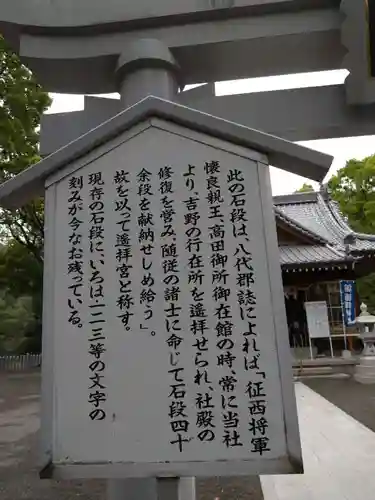 この石段は、八代郡誌によれば「征西将軍
懐良親王、高田御所御在館の時、常に当社
より、吉野の行在所を遥拝せられ、社殿の
修復を営み、随従の諸士に命じて石段四十
余段を献納せしめ給う」
故を以って遥拝宮と称す。
現存の石段に、いろは一二三等の文字の
刻みが今なお残っている。